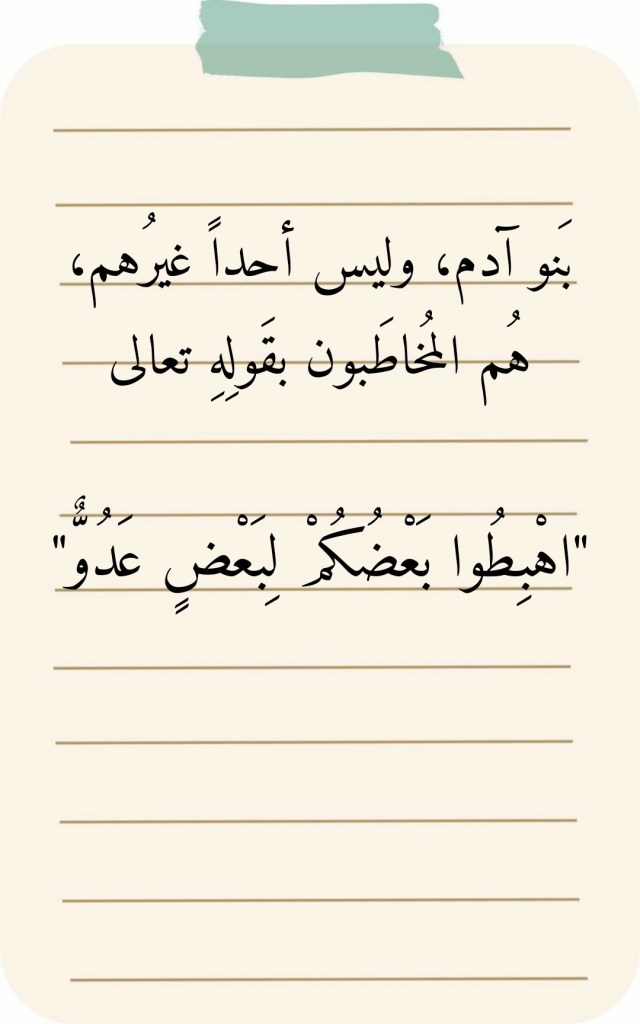 بَنو آدم، وليس أحداً غيرُهم،
هُم المُخاطَبون بقَولِهِ تعالى
"اهْبِطُوا بَعْضُكُمْ لِبَعْضٍ عَدُوٌّ"